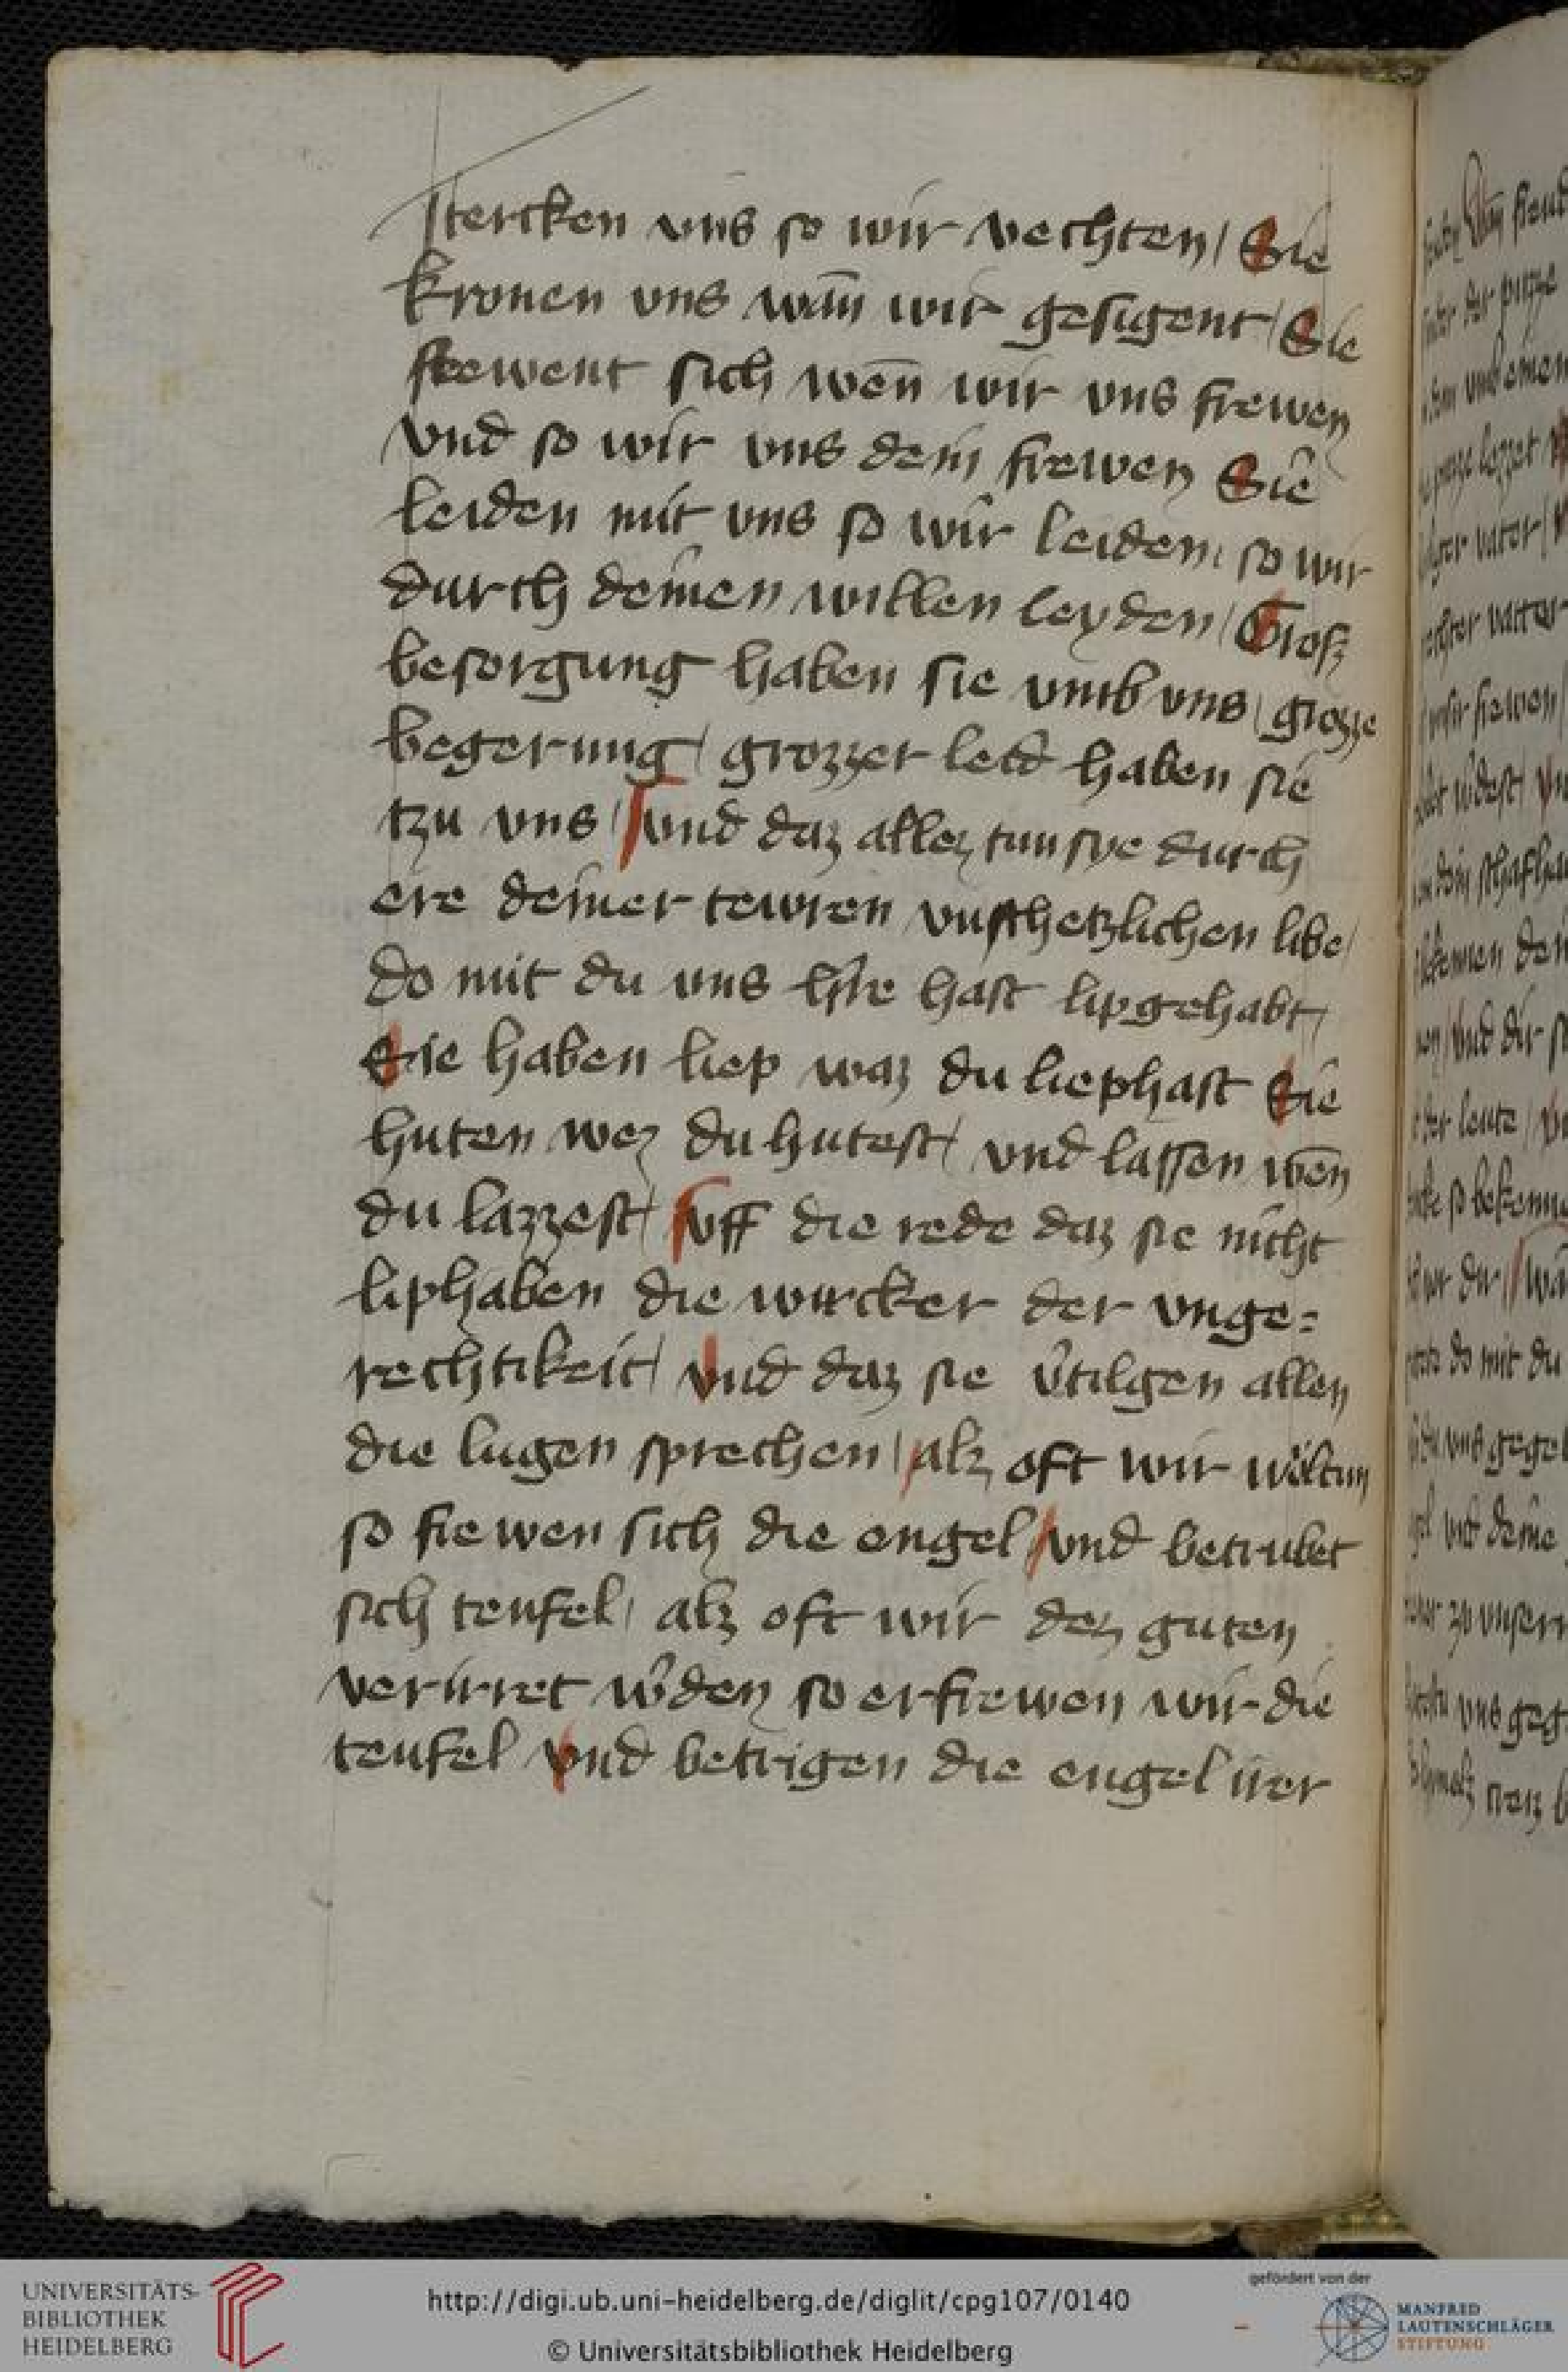 stercken vns so wir vechten / Sie
kronen vns wan̄ wir gesigent / Sie
frewent sich wen̄ wir vns frewen
vnd so wir vns dein frewen Sie
leiden mit vns so wir leiden / so wir
durch deinen willen leyden / Groß
besorgung haben sie vmb vns / grozze
begerung / grozzer leid haben sie
tzu vns / vnd daz allez tun sye durch
ere deiner tewren vnschetzlichen libe /
do mit du vns hast lip gehabt /
Sie haben liep waz du liep hast Sie
huten wez du hutest / vnd lassen wen̄
du lazzest / vff die rede daz sie nicht
liphaben die wurcker der vnge=
rechtikeit / vnd daz sie v̉tilgen allen
die lugen sprechen / alz oft wir woltun
so frewen sich die engel / vnd betrubet
sich teufel / alz oft wir dez guten
verirret w̉den so erfrewen wir die
teufel vnd betrigen die engel irer
UNIVERSITÄTS-
BIBLIOTHEK
HEIDELBERG
http://digi.ub.uni-heidelberg.de/diglit/cpg107/0140
© Universitätsbibliothek Heidelberg
gefördert von der
MANFRED
LAUTENSCHLÄGER
STIFTUNG